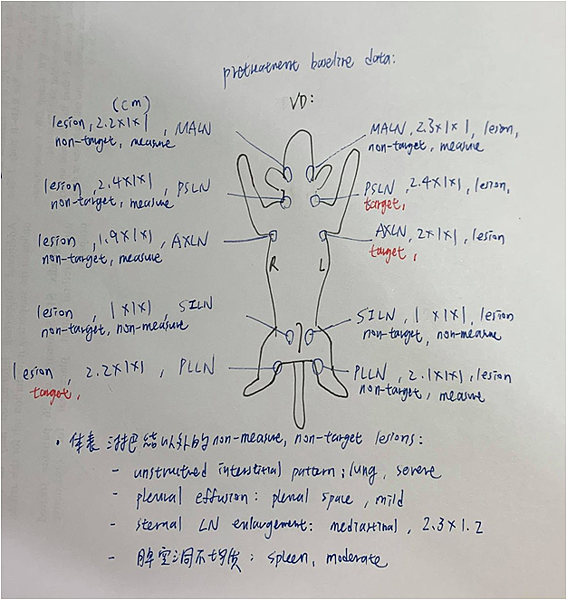 pretreatment baseline data:
(cm)
VD:
lesion, 2.2x1x1, MALN
non-target, measure
MALN, 2.3x1x1, lesion,
non-target, measure
lesion, 2.4x1x1, PSLN
non-target, measure
PSLN, 2.4x1x1, lesion,
target,
lesion, 1.9x1x1, AXLN
non-target, measure
AXLN, 2x1x1, lesion
target,
R
L
lesion, 1x1x1, SILN
non-target, non-measure
SILN, 1x1x1, lesion
non-target, non-measure
lesion, 2.2x1x1, PLLN
target,
PLLN, 2.1x1x1, lesion
non-target, measure
• 体表淋巴结以外的non-measure, non-target lesions:
- unstructured interstinal pattern; lung, severe
- pleural effusion: plenal space, mild
- sternal LN enlargement: mediastinal, 2.3x1.2
- 脾空洞不均质: spleen, moderate